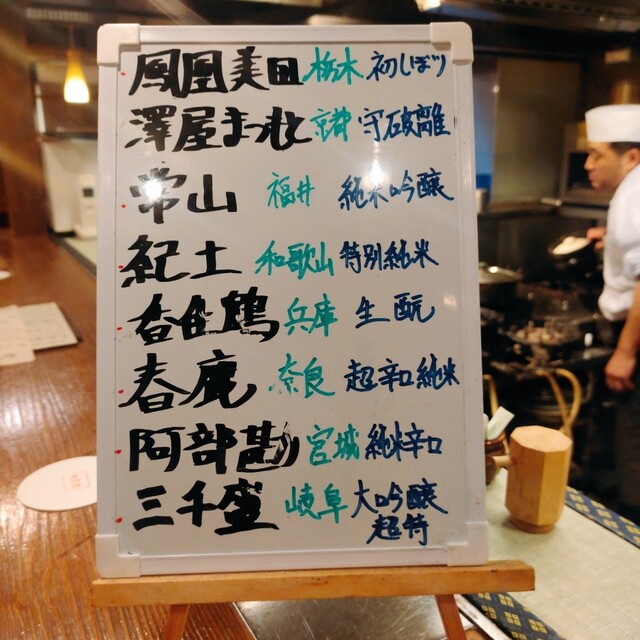 鳳凰美田 栃木 初しぼり
澤屋まつもと 京都 守破離
常山 福井 純米吟醸
紀土 和歌山 特別純米
香住鶴 兵庫 生酛
春鹿 奈良 超辛口純米
阿部勘 宮城 純米辛口
三千盛 岐阜 大吟醸
超特